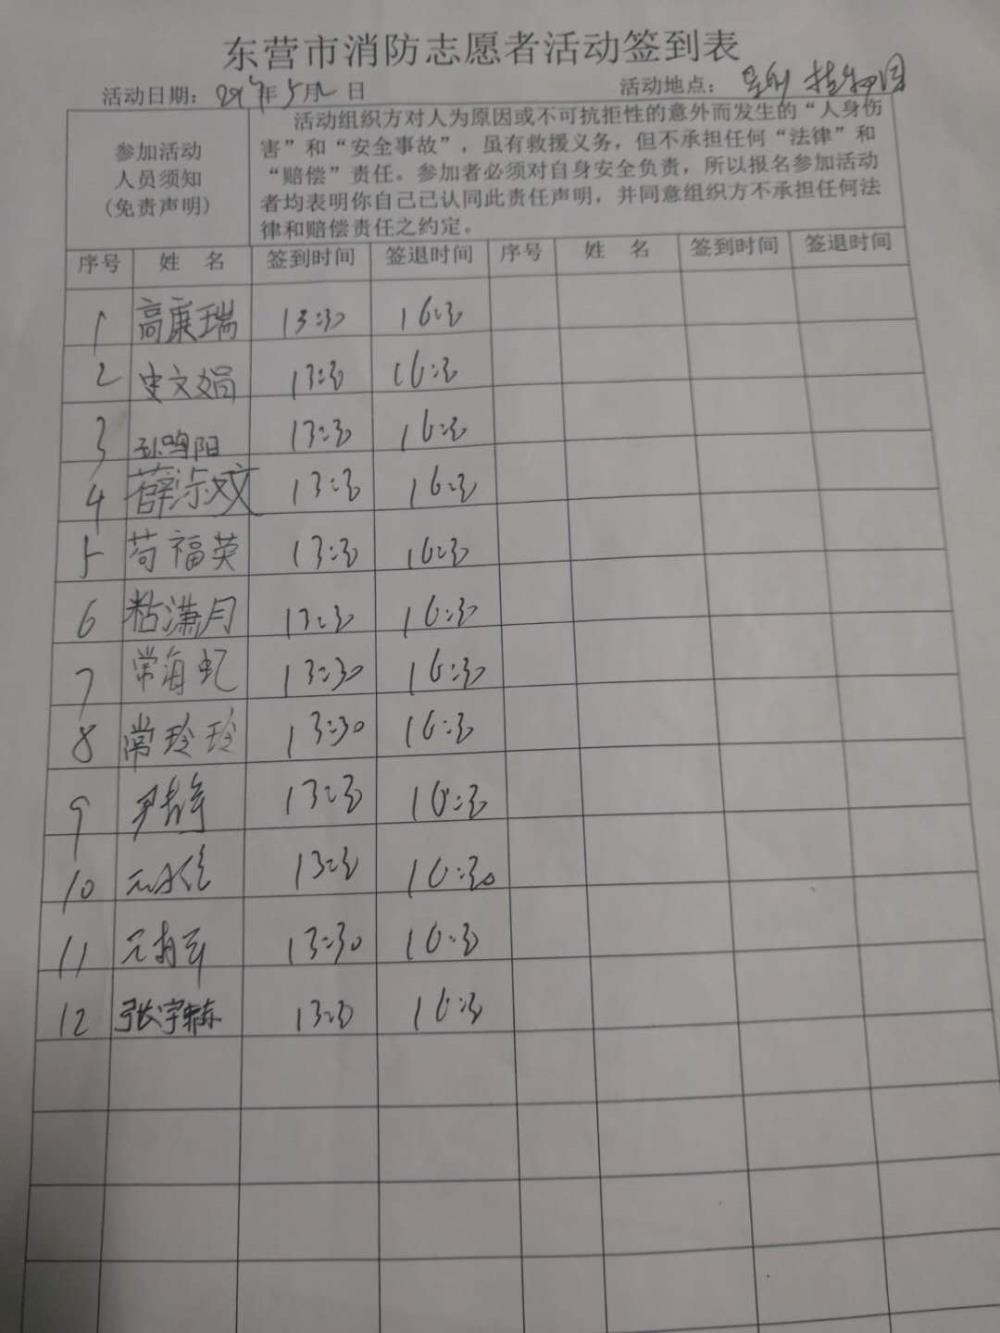 东营市消防志愿者活动签到表
活动日期： 年5月2日 活动地点： 植物园
参加活动
人员须知
(免责声明)
活动组织方对人为原因或不可抗拒性的意外而发生的“人身伤
害”和“安全事故”，虽有救援义务，但不承担任何“法律”和
“赔偿”责任。参加者必须对自身安全负责，所以报名参加活动
者均表明你自己已认同此责任声明，并同意组织方不承担任何法
律和赔偿责任之约定。
序号 姓 名 签到时间 签退时间 序号 姓 名 签到时间 签退时间
1 高康瑞 13:30 16:30
2 史文娟 13:30 16:30
3 孙鸣阳 13:30 16:30
4 薛淑文 13:30 16:30
5 苟福英 13:30 16:30
6 粘潇月 13:30 16:30
7 常海虹 13:30 16:30
8 常玲玲 13:30 16:30
9 13:30 16:30
10 13:30 16:30
11 13:30 16:30
12 张宇栋 13:30 16:30